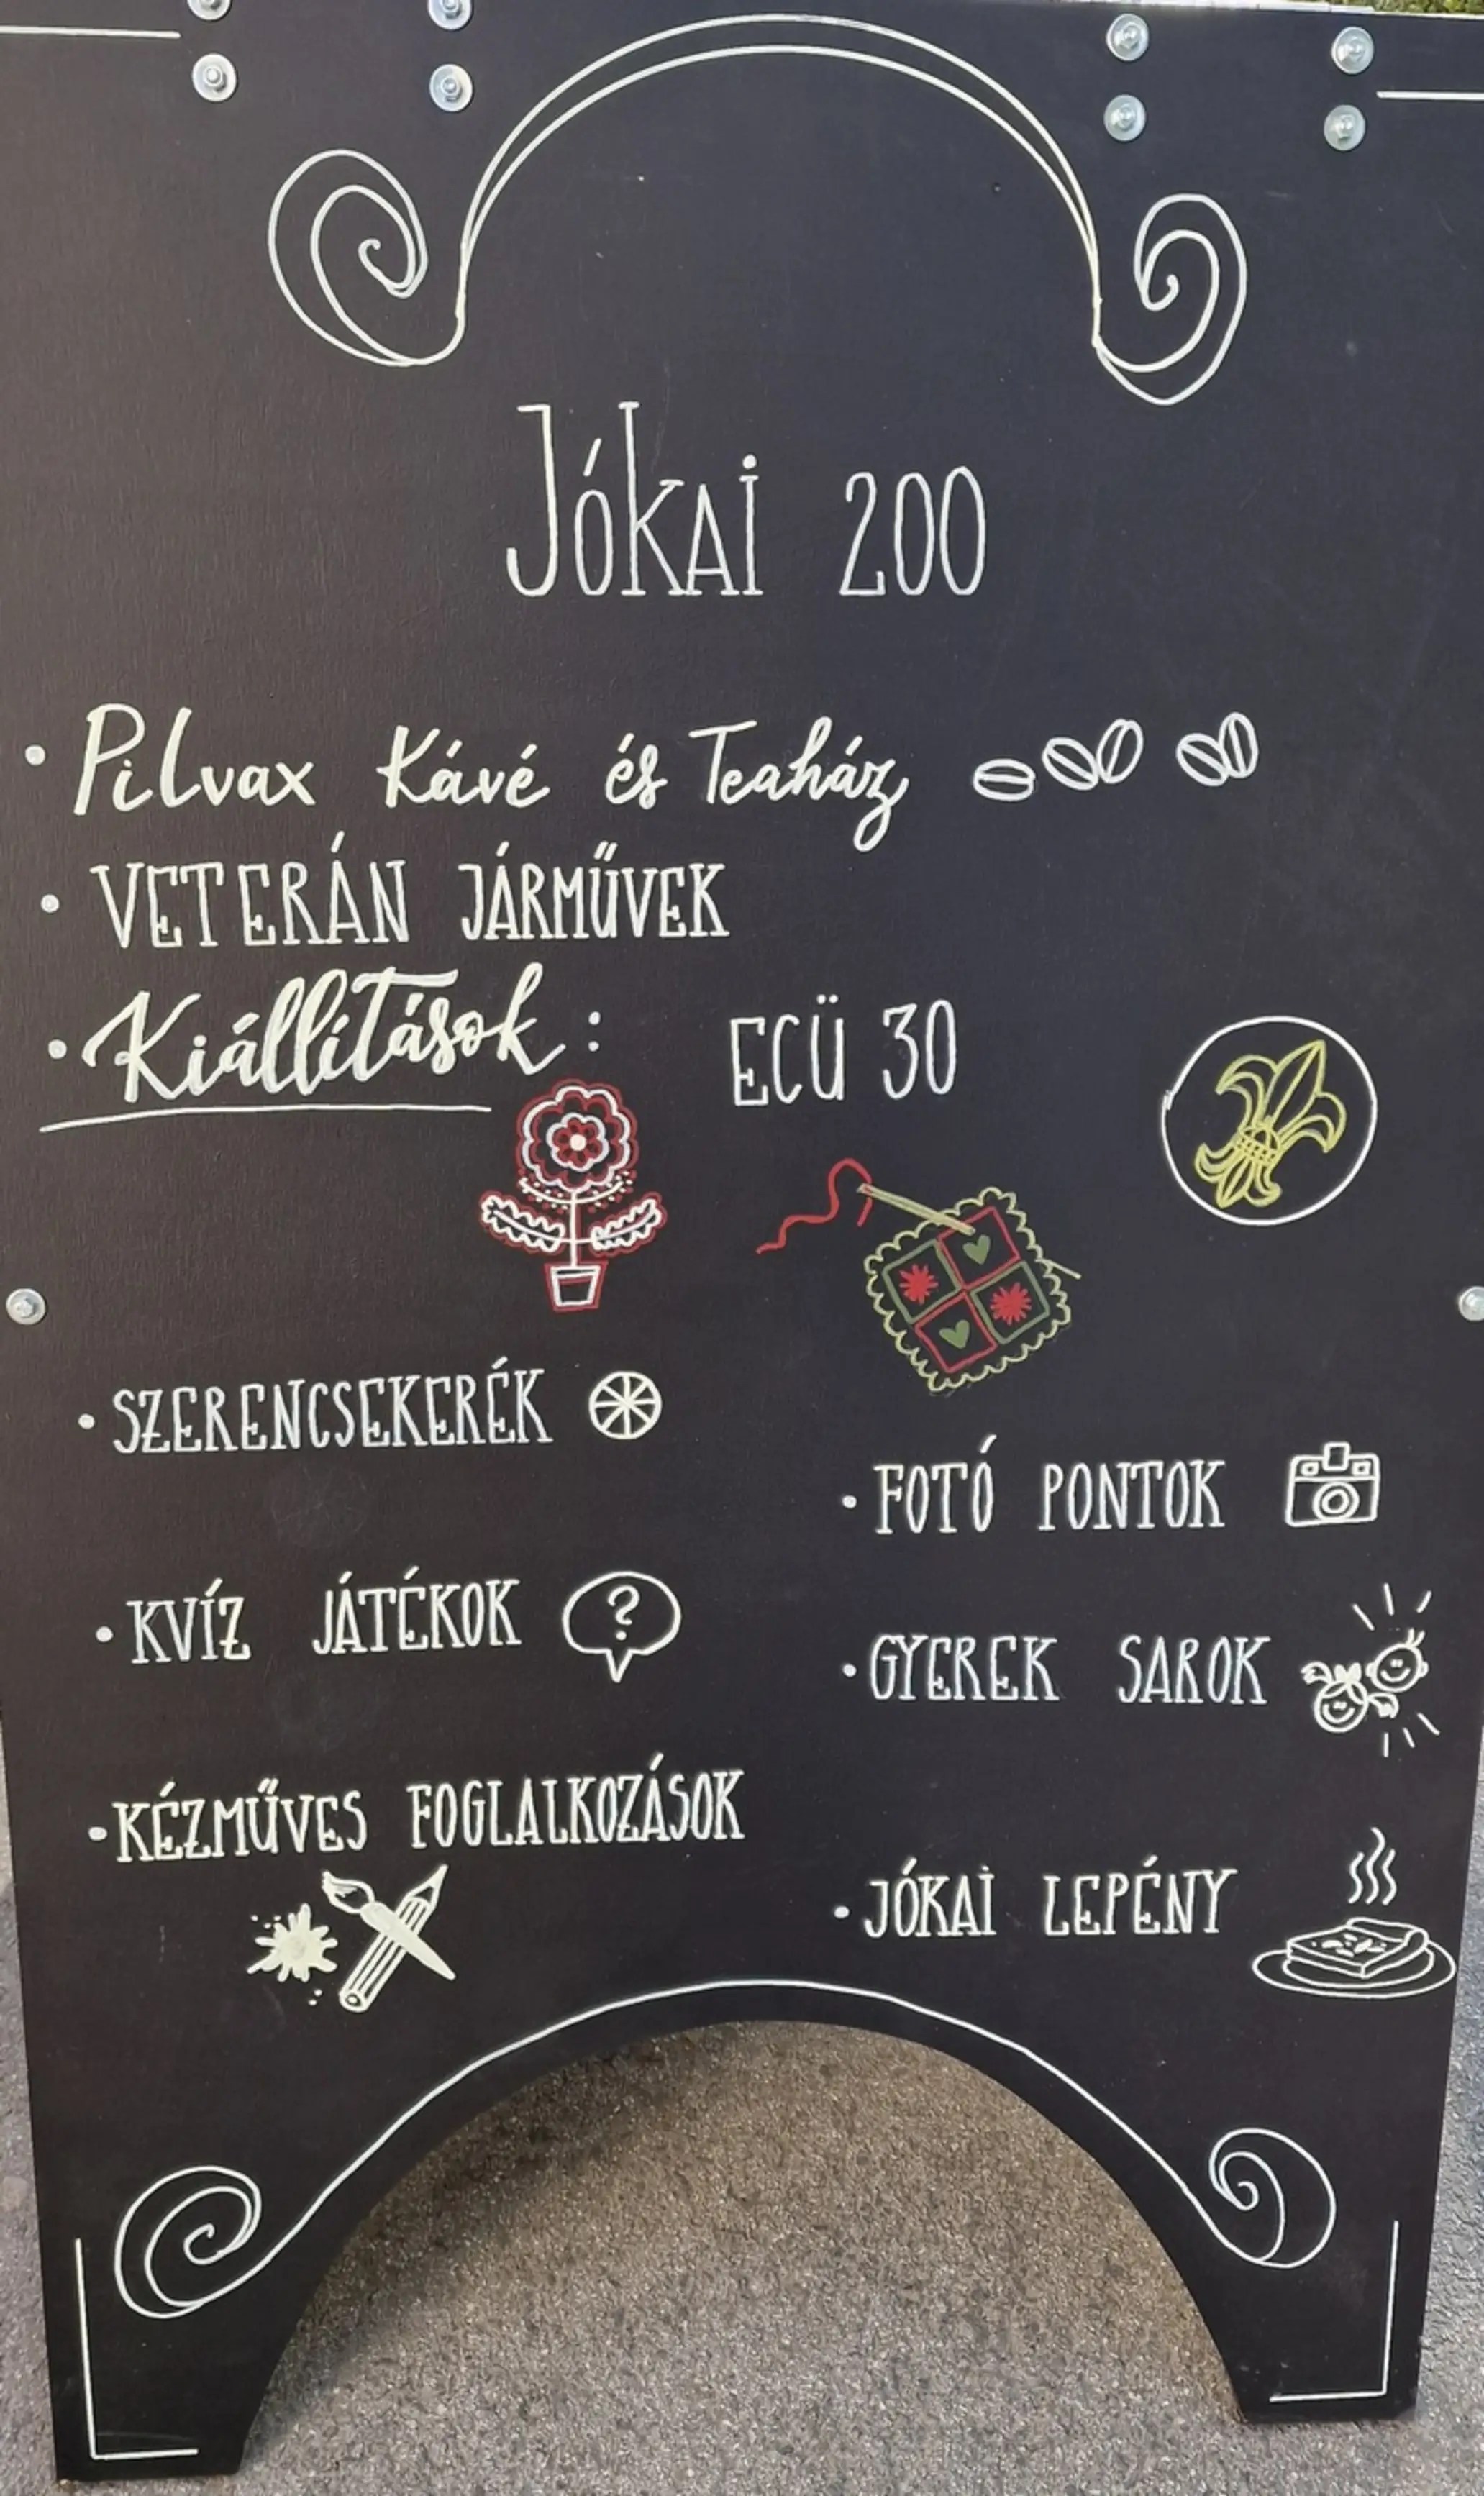 Jókai 200
• Pilvax Kávé és Teaház
• VETERÁN JÁRMŰVEK
• Kiállítások: ECÜ 30
• SZERENCSEKERÉK
• FOTÓ PONTOK
• KVÍZ JÁTÉKOK ?
• GYEREK SAROK
• KÉZMŰVES FOGLALKOZÁSOK
• JÓKAI LEPÉNY